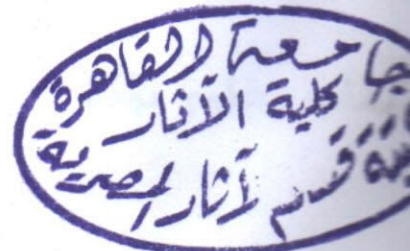 جامعة القاهرة
كلية الآثار
قسم الآثار المصرية